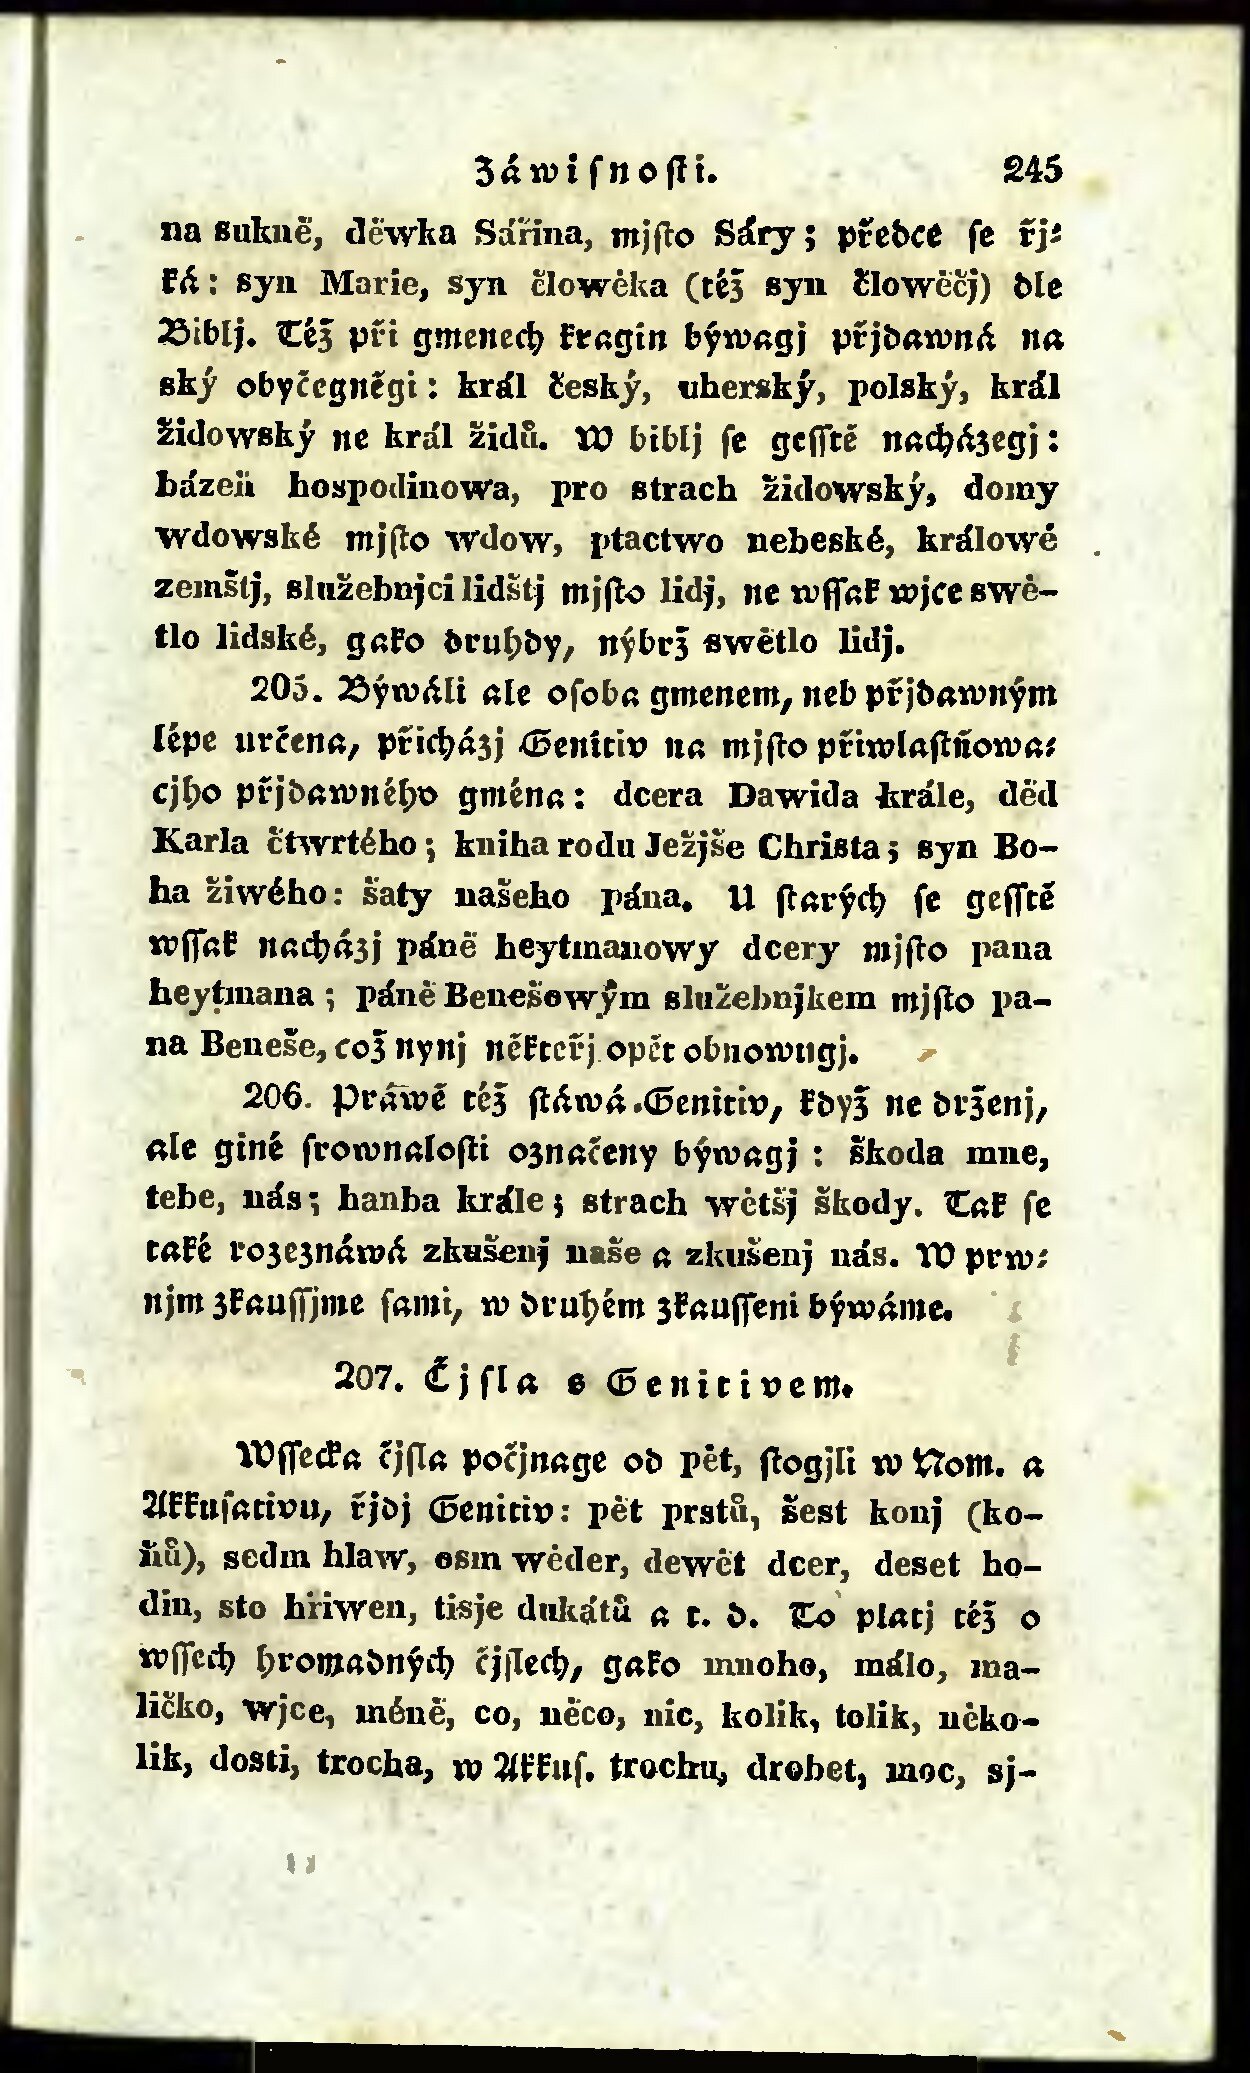 Záwiſnoſti. 245
na sukně, děwka Sářina, mjſto Sáry; předce ſe řj-
ká: syn Marie, syn člowěka (též syn člowěčj) dle
Biblj. Též při gmenech kragin býwagj přjdawná na
ský obyčegněgi: král český, uherský, polský, král
židowský ne král židů. W biblj ſe geſſtě nacházegj:
bázeň hospodinowa, pro strach židowský, domy
wdowské mjſto wdow, ptactwo nebeské, králowé
zemštj, služebnjci lidštj mjſto lidj, ne wſſak wjce swě-
tlo lidské, gako druhdy, nýbrž swětlo lidj.
205. Býwáli ale oſoba gmenem, neb přjdawným
lépe určena, přicházj Genitiv na mjſto přiwlaſtňowa-
cjho přjdawného gména: dcera Dawida krále, děd
Karla čtwrtého; kniha rodu Ježjše Christa; syn Bo-
ha žiwého: šaty našeho pána. U ſtarých ſe geſſtě
wſſak nacházj páně heytmanowy dcery mjſto pana
heytmana; páně Benešowým služebnjkem mjſto pa-
na Beneše, což nynj někteřj opět obnowugj.
206. Práwě též ſtáwá Genitiv, když ne drženj,
ale giné ſrownaloſti označeny býwagj: škoda mne,
tebe, nás; hanba krále; strach wětšj škody. Tak ſe
také rozeznáwá zkušenj naše a zkušenj nás. W prw-
njm zkauſſjme ſami, w druhém zkauſſeni býwáme.
207. Čjſla s Genitivem.
Wſſecka čjſla počjnage od pět, ſtogjli w Nom. a
Akkuſativu, řjdj Genitiv: pět prstů, šest konj (ko-
ňů), sedm hlaw, osm wěder, dewět dcer, deset ho-
din, sto hřiwen, tisje dukátů a t. d. To platj též o
wſſech hromadných čjſlech, gako mnoho, málo, ma-
ličko, wjce, méně, co, něco, nic, kolik, tolik, něko-
lik, dosti, trocha, w Akkuſ. trochu, drobet, moc, sj-